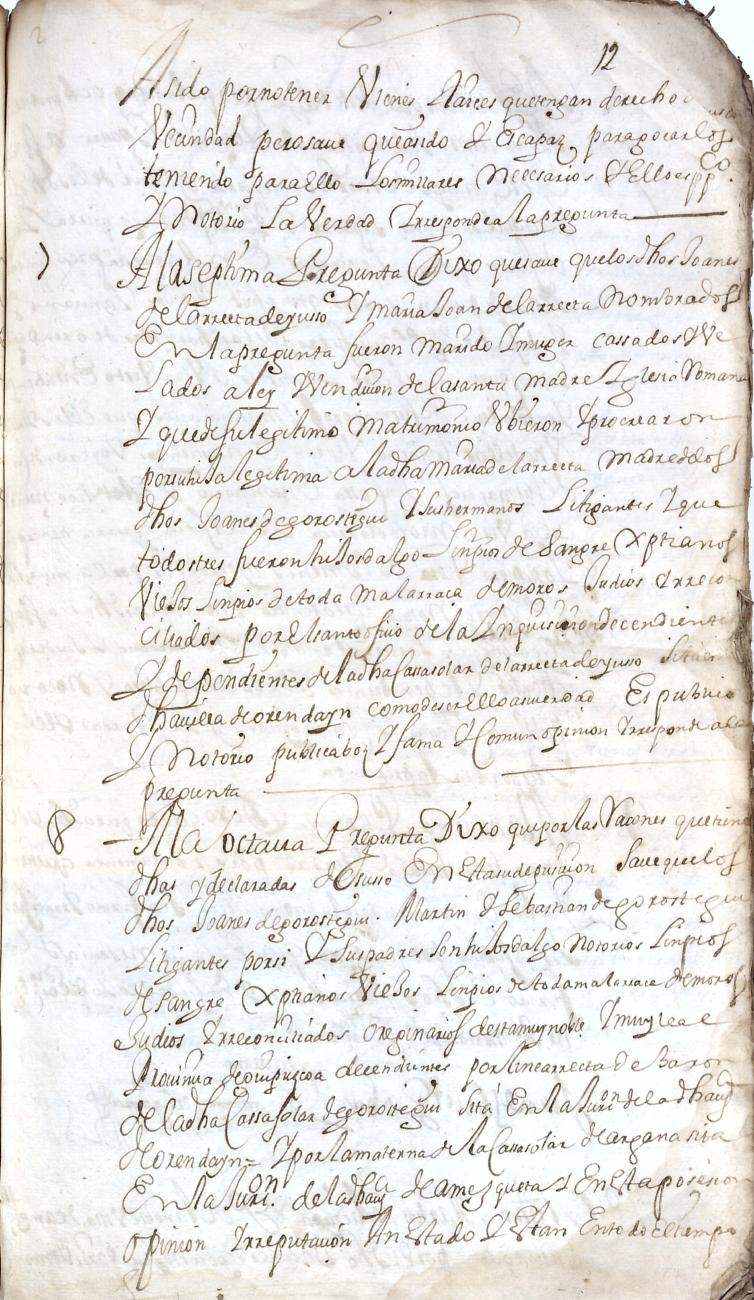 12
Asido pornotener Vienes Raices quetengan derecho
Vecindad perosaue queasido Y Escapaz paragocarlos
teniendo paraEllo Losmillares necesarios Y Elloes ppco.
Y Notorio La Verdad Yrrespondealapregunta
7
Alaseptima Pregunta Dixo quesaue quelosdhos Joanes
delarretadeyusso Y maria Joan delarrecta nombrados
Enlapregunta fueron marido Ymuger cassados Y Ve
lados a ley Y Vendicion delasanta madre Yglesia Romana
Y quedesulegitimo matrimonio Vbieron Yprocrearon
porsuhija legitima aladha mariadelarrecta madredelos
dhos Joanes degorostegui Y Sushermanos Litigantes Y que
todostres fueronhijosdalgo Linpios de Sangre Xptianos
Viejos Linpios detoda malarraça demoros Judios Yrrecon
ciliados porElsantooficio dela Ynquisicion decendientes
Y dependientes deladha Cassasolar delarrectadeyusso Sitaen
dhauilla deorendayn comodeserElloasuerdad Es publico
Y Notorio publicaboz Y fama Y Comun opinion Yrresponde ala
pregunta
8
Ala octaua Pregunta Dixo queporlas Racones quetiene
dhas y declaradas desusso En Estasudepusicion Sauequelos
dhos Joanes degorostegui. Martin Y Sebastian degorostegui
Litigantes porsi Y Suspadres sonhijosdalgo notorios Linpios
desangre Xptianos Viejos Linpios detodamalarraca demoros
Judios Yrreconciliados oreginarios destamuynoble Ymuyleal
Prouincia deguipuzcoa decendientes porlinearrecta de Baron
deladha Cassasolar degorostegui sita Enla Juron. deladhaua
deorendayn = Y porlamaterna dela Cassasolar deargana sita
Enla Juron. deladhaua deamezqueta Y En Esta posesion
opinion Yrreputacion An Estado Y Estan Entodo eltiempo